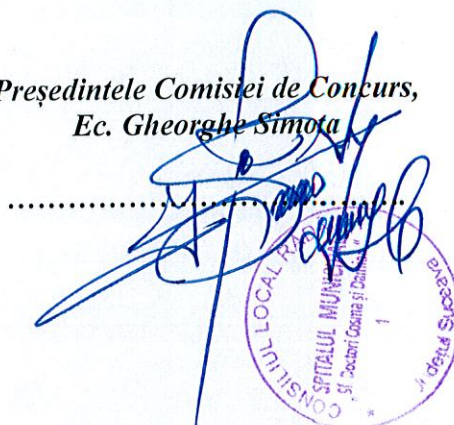 Președintele Comisiei de Concurs,
Ec. Gheorghe Simota
........................................
CONSILIUL LOCAL
SPITALUL MUNICIPAL
Sf. Doctori Cosma și Damian"
1
Județul Suceava